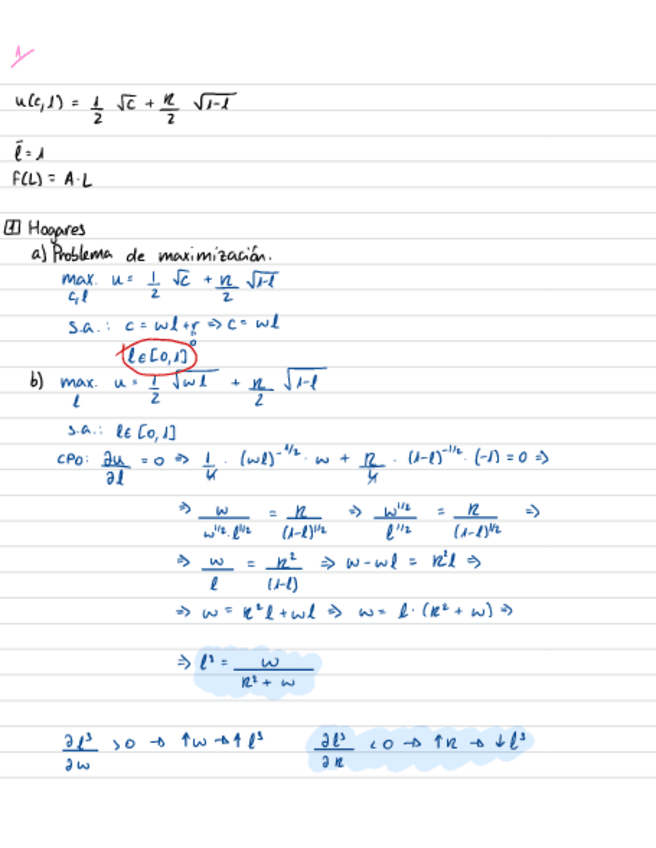 1
u(c,l) = 1/2 √c + κ/2 √1-l
l̄ = 1
F(L) = A·L
1 Hogares
a) Problema de maximización.
max. u = 1/2 √c + κ/2 √1-l
c,l
s.a.: c = wl + r => c = wl
0
l ∈ [0,1]
b) max. u = 1/2 √wl + κ/2 √1-l
l
s.a.: l ∈ [0,1]
CPO: ∂u/∂l = 0 => 1/4 · (wl)^-1/2 · w + κ/4 · (1-l)^-1/2 · (-1) = 0 =>
=> w/(w^1/2 · l^1/2) = κ/(1-l)^1/2 => w^1/2/l^1/2 = κ/(1-l)^1/2 =>
=> w/l = κ²/(1-l) => w - wl = κ²l =>
=> w = κ²l + wl => w = l · (κ² + w) =>
=> l^s = w/(κ² + w)
∂l^s/∂w > 0 → ↑w → ↑l^s ∂l^s/∂κ < 0 → ↑κ → ↓l^s